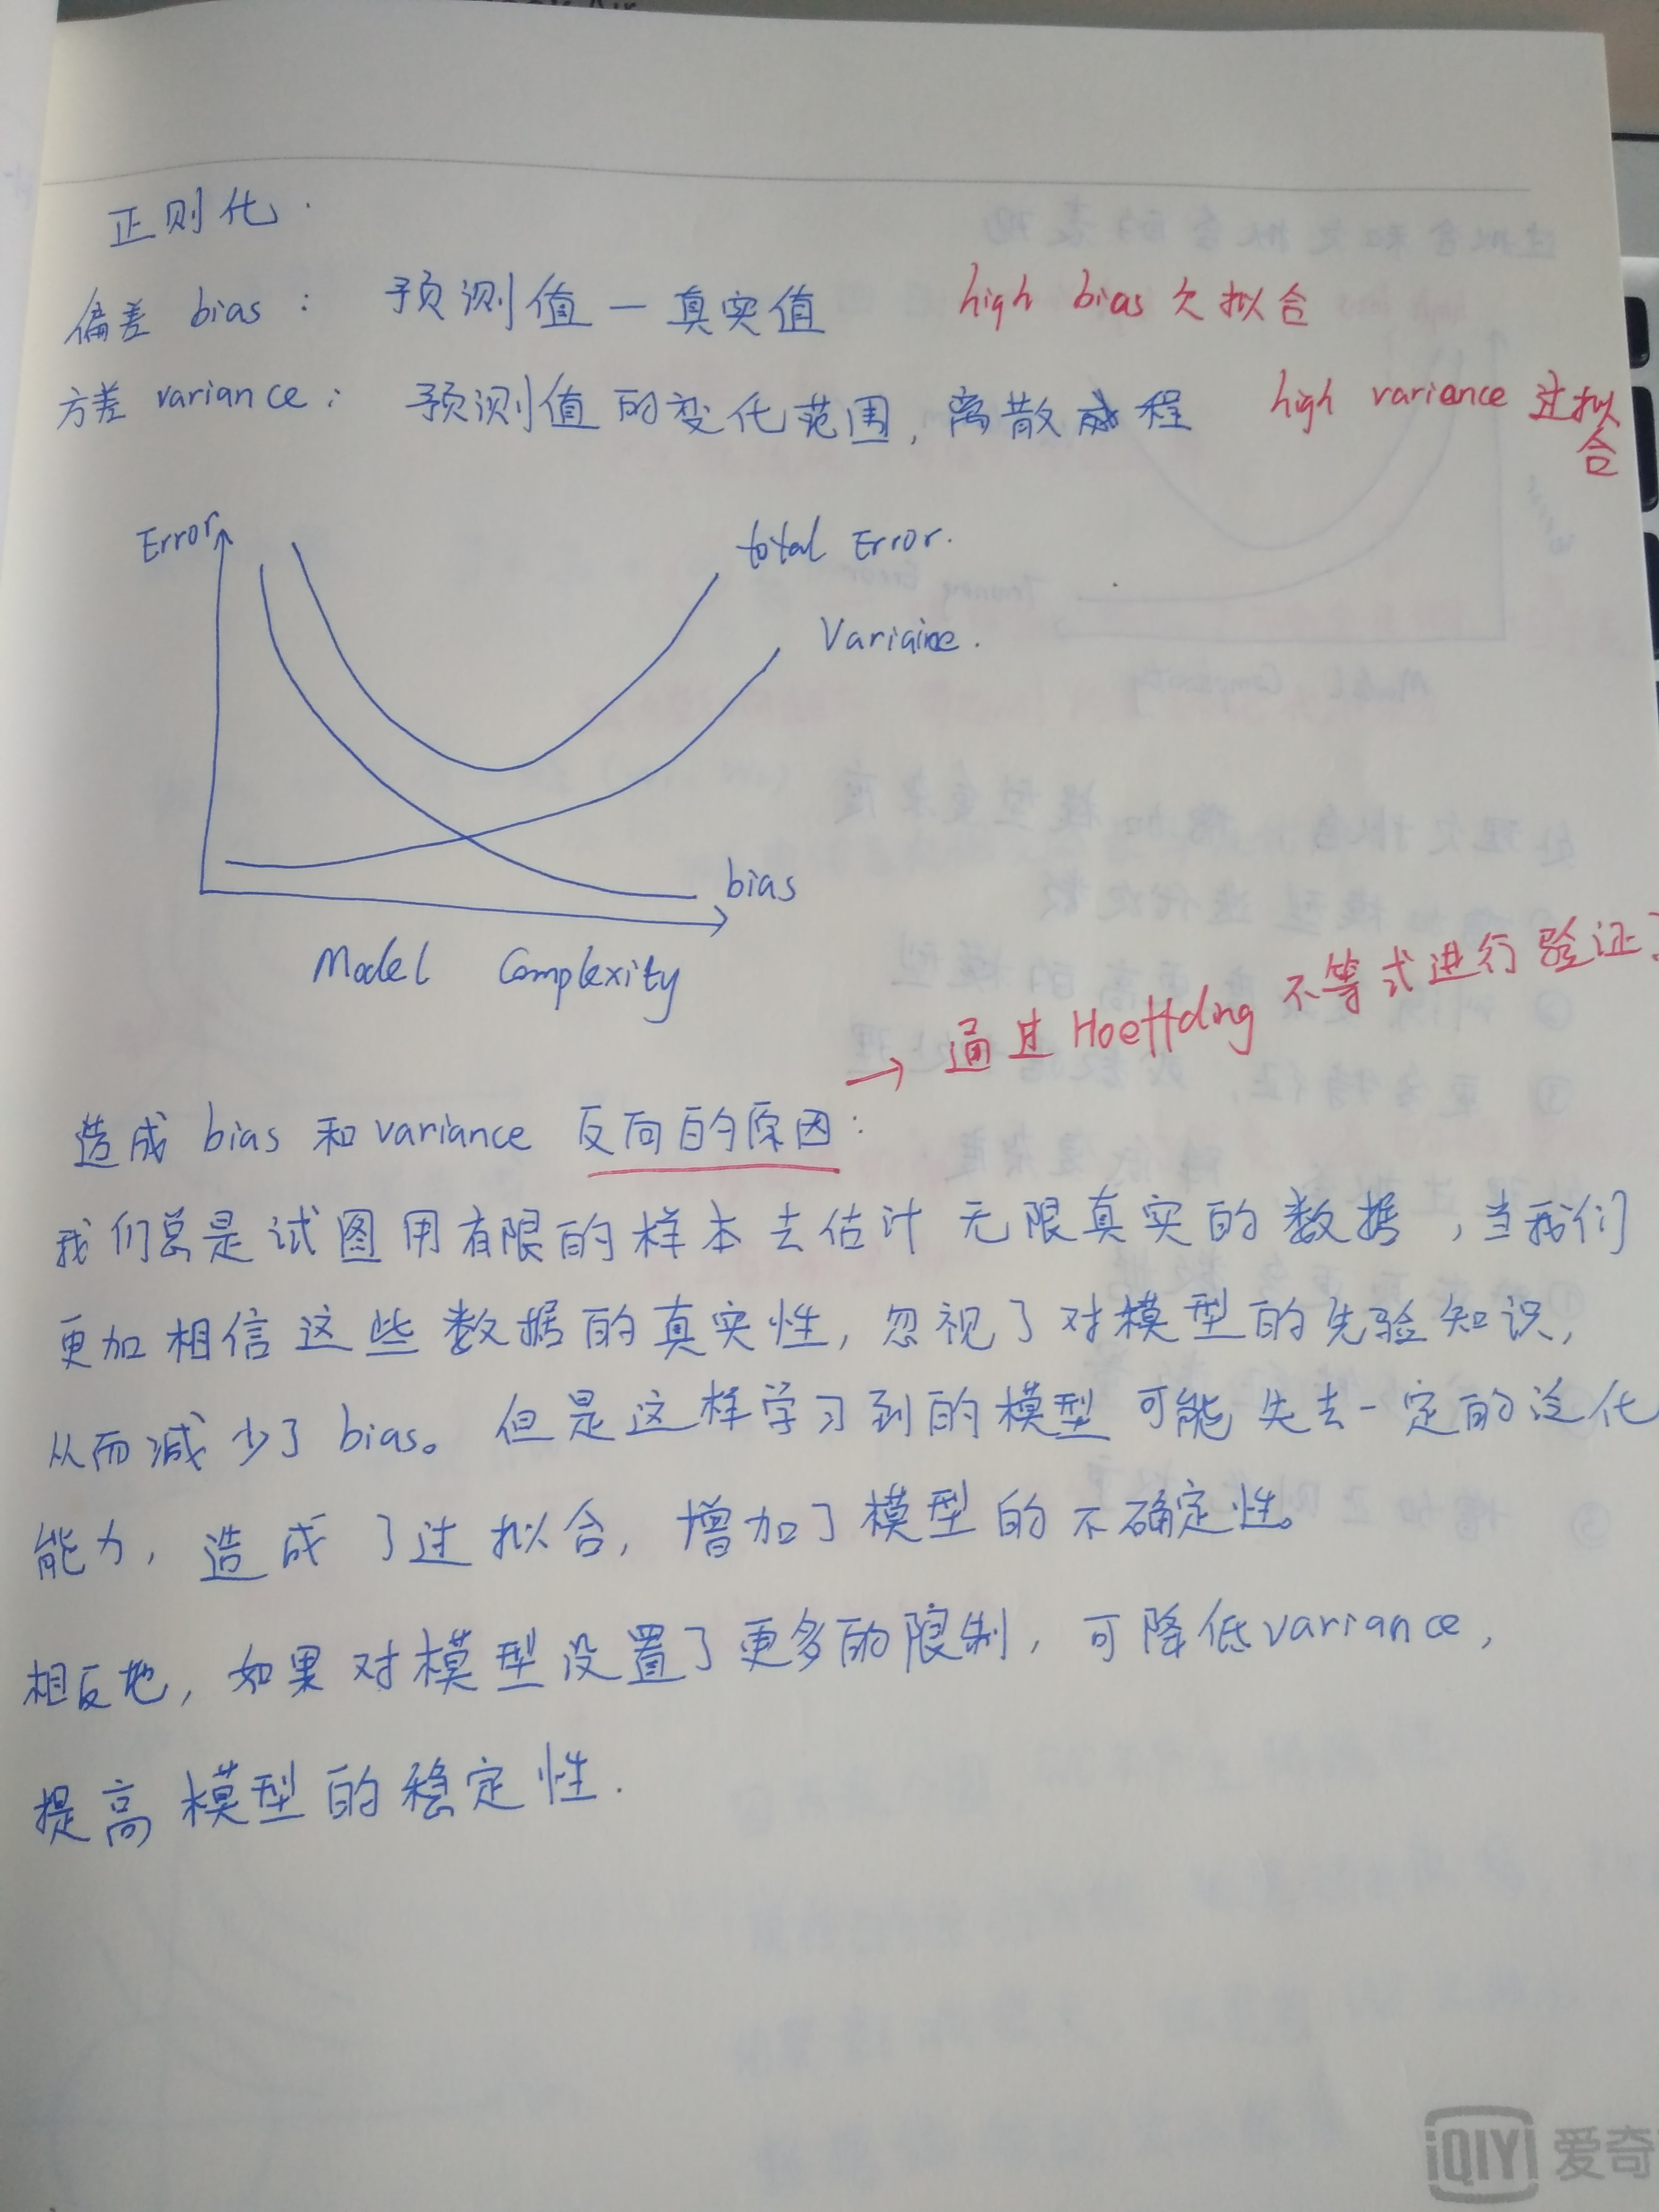 正则化.
偏差 bias : 预测值 — 真实值 high bias 欠拟合
方差 variance : 预测值的变化范围, 离散 程 high variance 过拟
合
Error
total Error.
Variance.
bias
Model Complexity
→ 通过 Hoeffding 不等式进行验证
造成 bias 和 variance 反向的原因:
我们总是试图用有限的样本去估计无限真实的数据, 当我们
更加相信这些数据的真实性, 忽视了对模型的先验知识,
从而减少了 bias。但是这样学习到的模型可能失去一定的泛化
能力, 造成了过拟合, 增加了模型的不确定性。
相反地, 如果对模型设置了更多的限制, 可降低 variance,
提高模型的稳定性.
iQIYI 爱奇